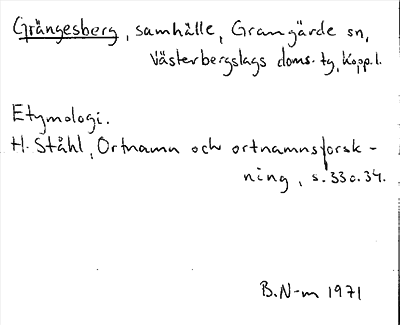 Grängesberg, samhälle, Grangärde sn,
Västerbergslags doms. tg, Kopp. l.
Etymologi.
H. Ståhl, Ortnamn och ortnamnsforsk-
ning, s. 33 o. 34.
B. N-m 1971